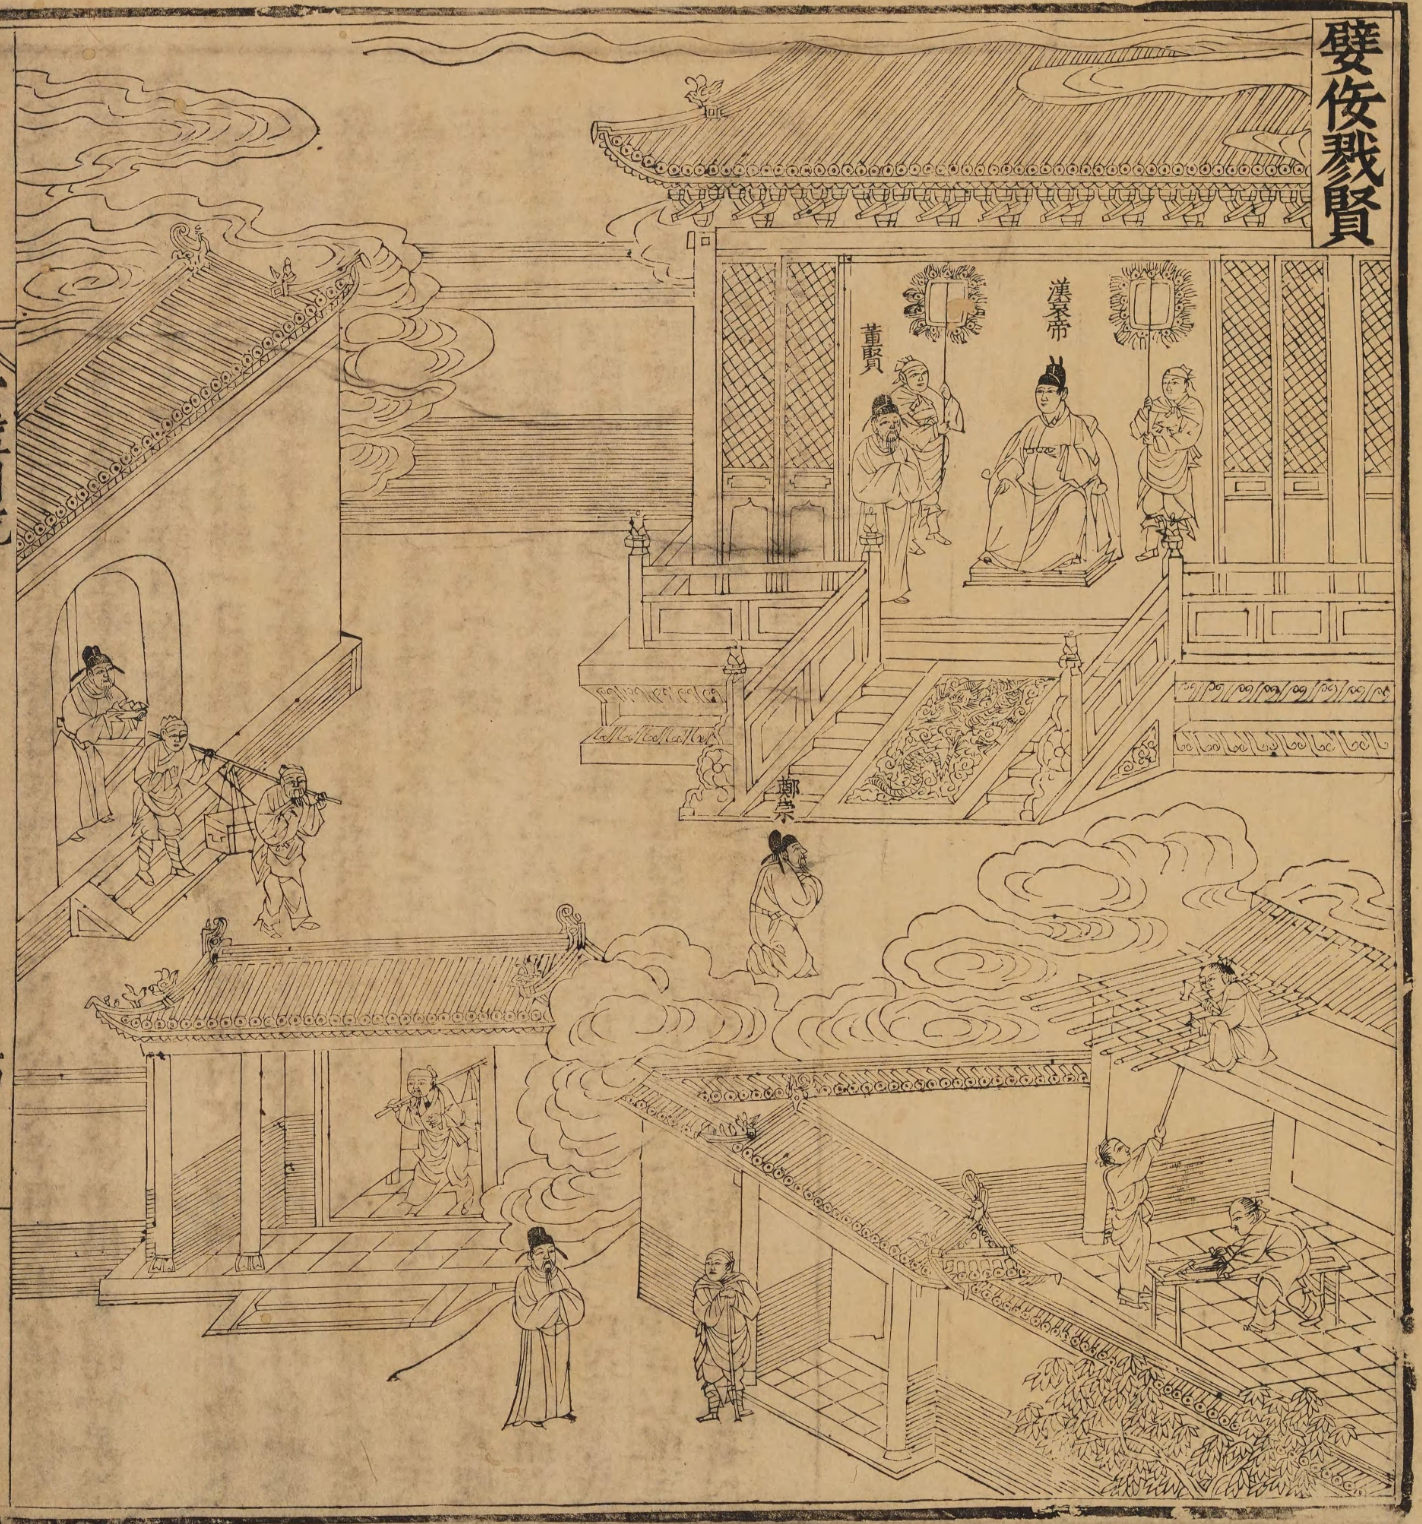 嬖佞戮賢
漢哀帝
董賢
鄭崇